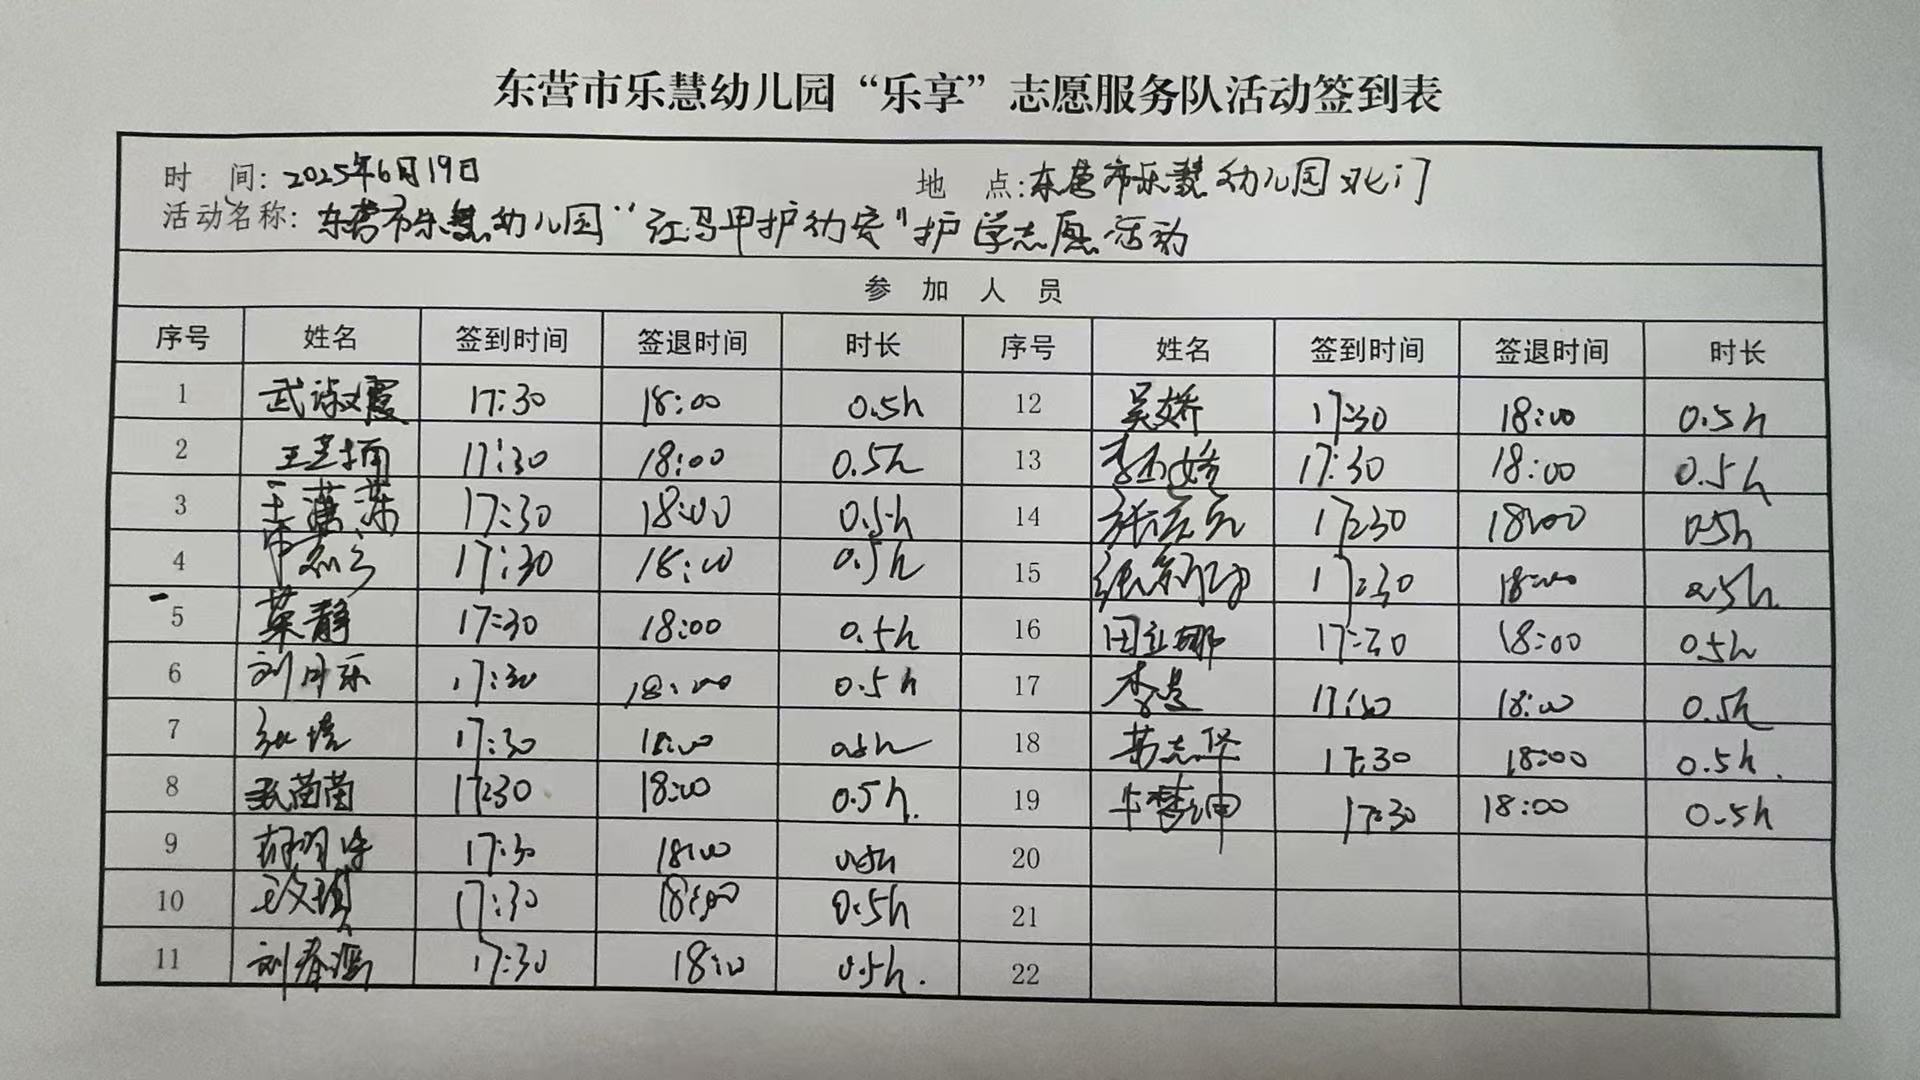 东营市乐慧幼儿园“乐享”志愿服务队活动签到表
时 间：2025年6月19日 地 点：东营市乐慧幼儿园北门
活动名称：东营市乐慧幼儿园“红马甲护幼安”护学志愿活动
参 加 人 员
序号 姓名 签到时间 签退时间 时长 序号 姓名 签到时间 签退时间 时长
1 武淑霞 17:30 18:00 0.5h 12 吴娇 17:30 18:00 0.5h
2 王芝楠 17:30 18:00 0.5h 13 17:30 18:00 0.5h
3 17:30 18:00 0.5h 14 17:30 18:00 0.5h
4 17:30 18:00 0.5h 15 17:30 18:00 0.5h
5 静 17:30 18:00 0.5h 16 田立娜 17:30 18:00 0.5h
6 刘丹乐 17:30 18:00 0.5h 17 李 17:30 18:00 0.5h
7 17:30 18:00 0.5h 18 志华 17:30 18:00 0.5h
8 苗苗 17:30 18:00 0.5h 19 牛梦坤 17:30 18:00 0.5h
9 17:30 18:00 0.5h 20
10 王文琪 17:30 18:00 0.5h 21
11 刘春 17:30 18:00 0.5h 22